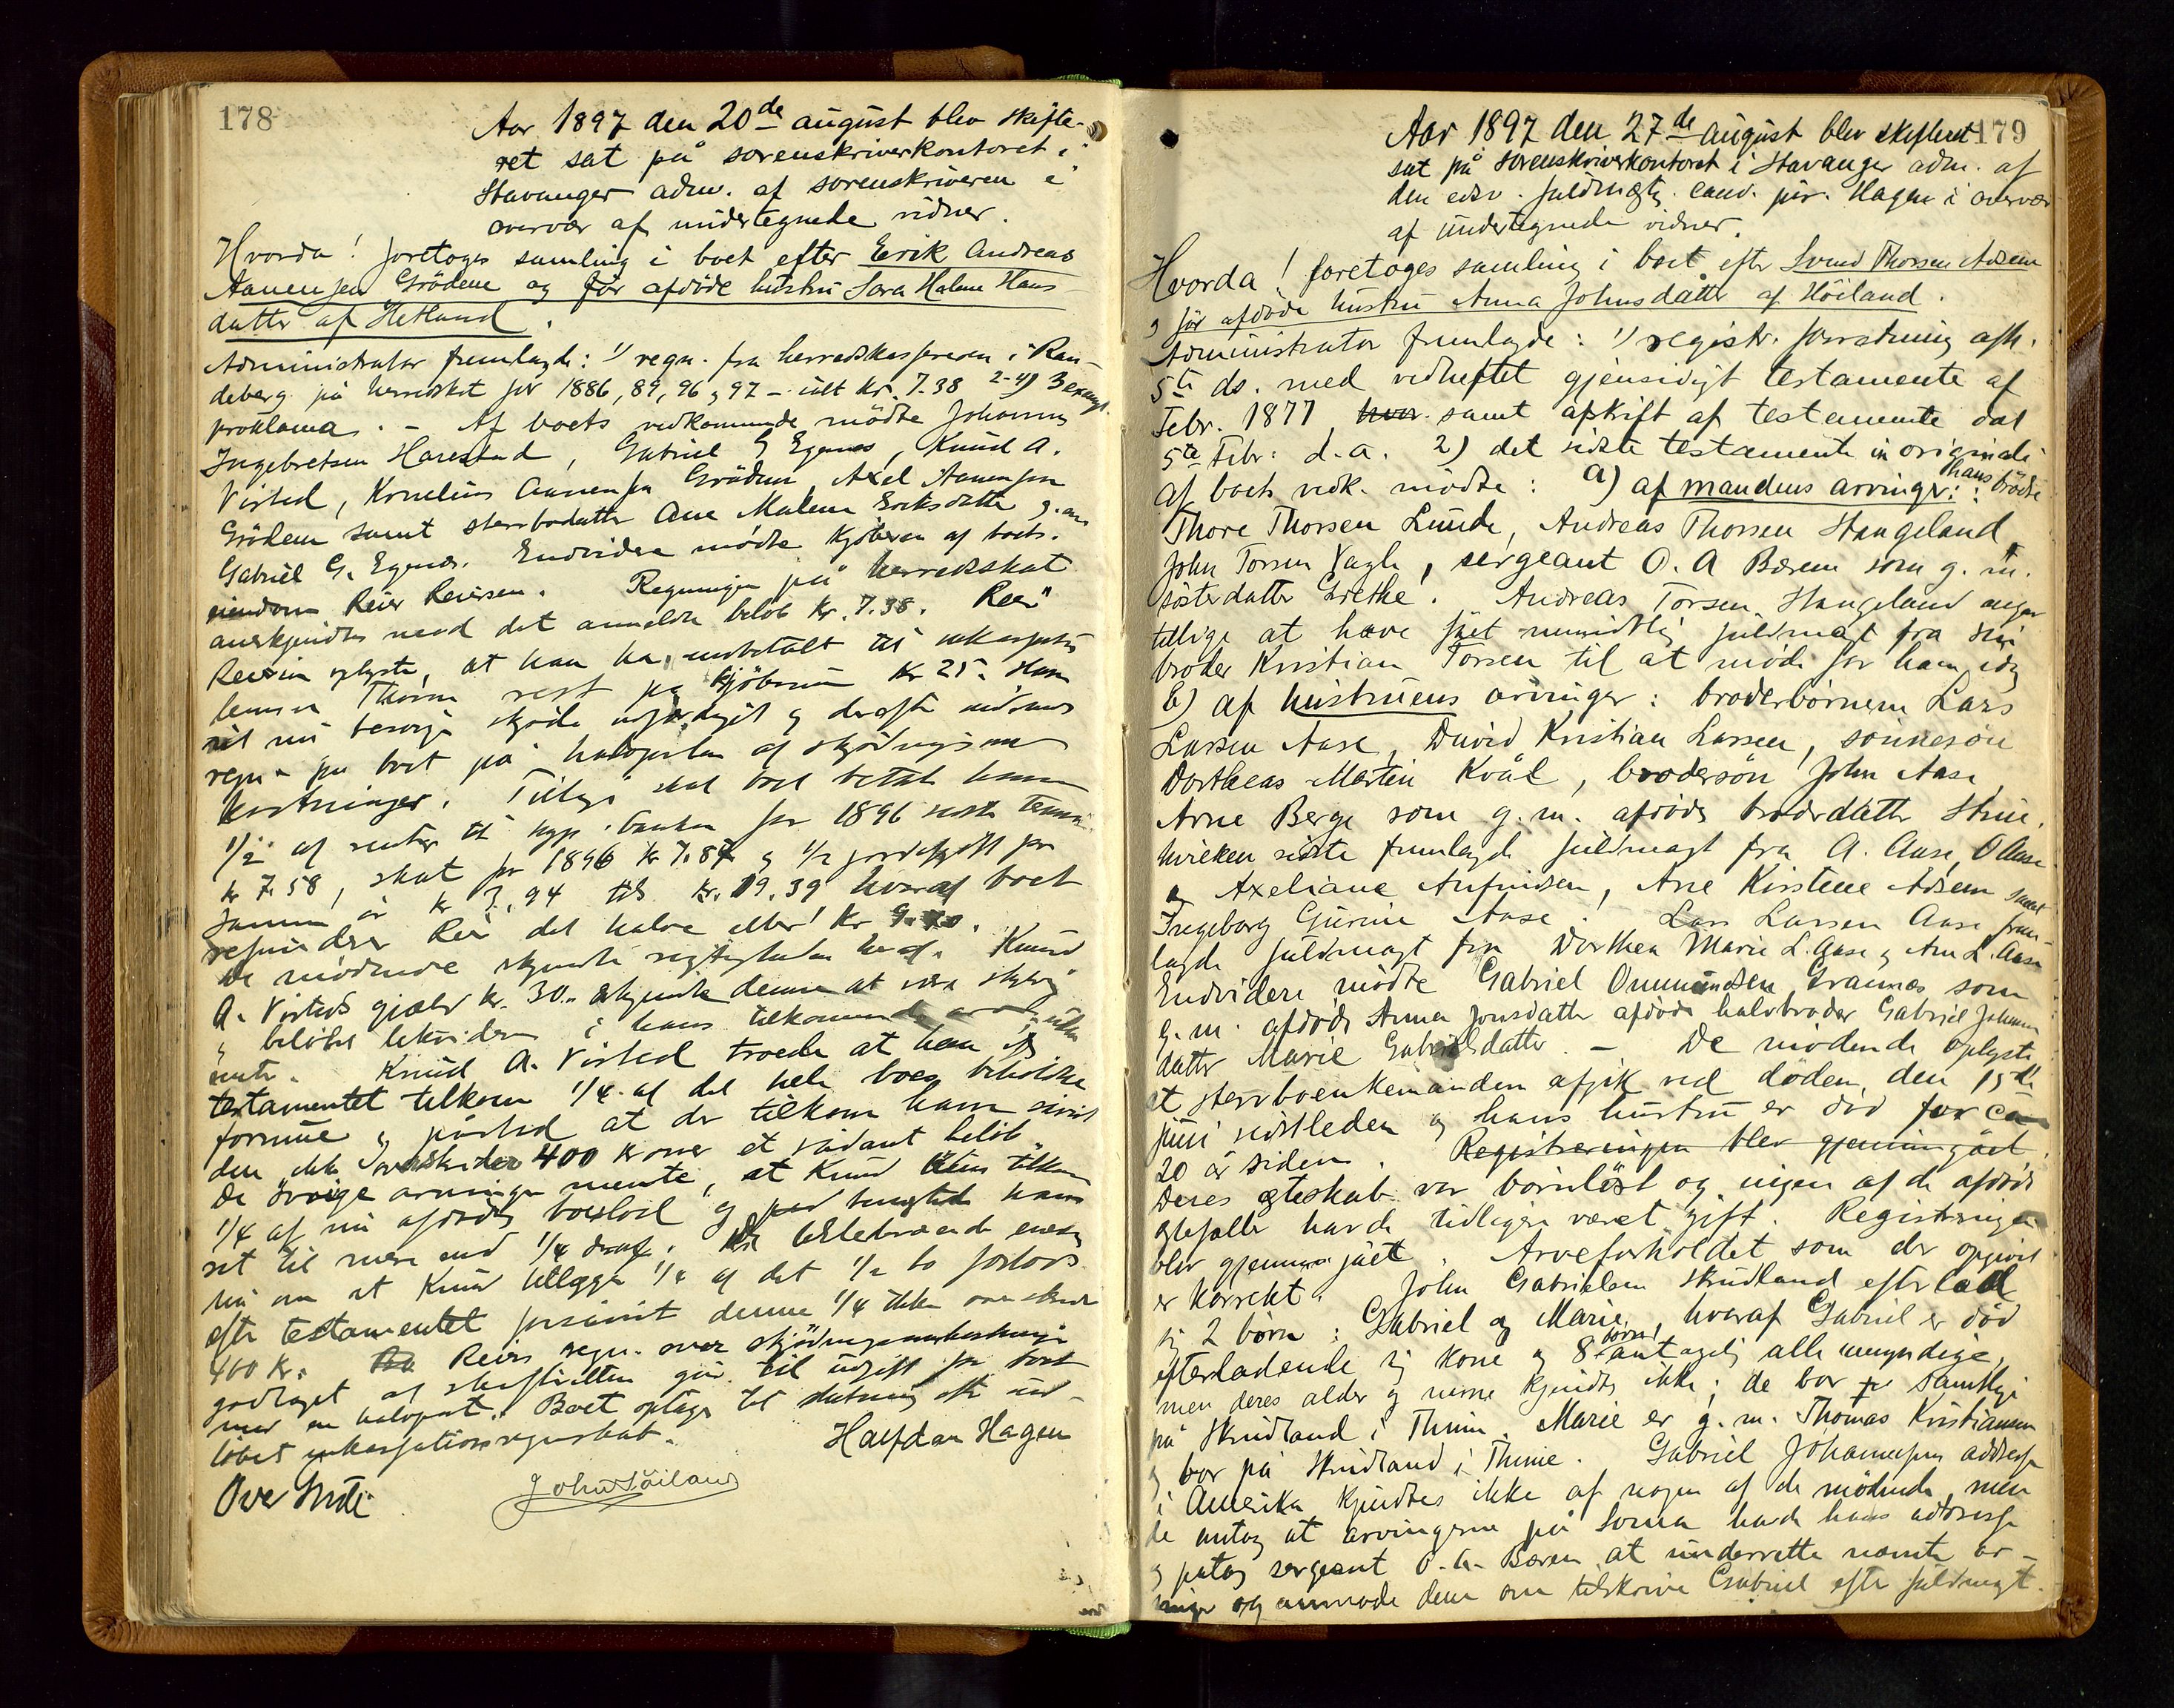 178
Aar 1897 den 20de august blev skifte-
ret sat på sorenskriverkontoret i
Stavanger adm. af sorenskriveren i
overvær af undertegnede vidner.
Hvorda! foretoges samling i boet efter Eerik Andreas
Aanensen Grödem og før afdöde hustru Sara Malene Hans
datter af Hetland.
Administrator fremlagde: 1) regn. fra herredskassereren i Ran-
deberg på herredskat for 1886, 89, 96 & 97 – ialt kr. 7.38 2-4) 3 expl.
proklama. – Af boets vedkommende mödte Johannes
Ingebretsen Harestad, Gabriel G Egenes, Knud A.
Visted, Kornelius Aanensen Grödem, Axel Aanensen
Grödem samt sterbodatter Ane Malene Eriksdatter g.m.
Gabriel G. Egenes. Endvidere mödte kjöberen af boets
eiendom Reier Reiersen. Regningen på herredsskat
anerkjendtes med det anmeldte belöb kr. 7.38. Reier
Reiersen oplyste, at han har indbetalt til inkassator
Thorsen rest på kjöbesum kr 25. Han
vil nu besörge skjöde udfærdiget & derefter indsende
regn. på boet på halvparten af skjödnings
kostninger. Tillige skal boet betale ham
1/2 af renter til hyp. banken for 1896 sidste termin
kr 7.58, skat for 1896 kr 7.87 & 1/2 jordafgift for
samme år kr 3.94 tils kr. 19.39 hvoraf boet
refunderer Reier det halve eller kr 9.70.
De mödende erkjendte rigtigheden heraf. Knud
A. Visteds gjæld kr. 30.. erkjendte denne at være skyldig
& belöbet likvideres i hans tilkommende arv uden
rente. Knud A. Visted troede at han efter
testamentet tilkom 1/4 af det hele boes beholdne
formue & påstod at der tilkom ham
den ikke overskrider 400 kroner et sådant belöb.
De övrige arvinger mente, at Knud kun tilkom
1/4 af nu afdödes boeslod & ham
ret til mere end 1/4 deraf. De enedes
nu om at Knud tillægges 1/4 af det 1/2 bo
efter testamentet forsåvidt denne 1/4 ikke overskrider
400 kr. Reiers regn. over skjödningsomkostninger
godtaget af skifteretten går til udgift for boet
med en halvpart. Boet optages til slutning efter ind-
löbet inkassationsregnskab. Halfdan Hagen
Ove John Söiland
179
Aar 1897 den 27de august blev skifteret
sat på sorenskriverkontoret i Stavanger adm. af
den edsv. fuldmægtig cand. jur. Hagen i overvær
af undertegnede vidner.
Hvorda! foretoges samling i boet efter Svend Thorsen Adsem
& før afdöde hustru Anna Johnsdatter af Höiland.
Administrator fremlagde: 1) registr. forretning afh.
5te ds. med vedheftet gjensidigt testamente af
Febr. 1877, hvor samt afskrift af testamente dat
5te Febr: d.a. 2) det sidste testamente in originali
Af boets vedk. mödte: a) af mandens arvinger: hans brödre
Thore Thorsen Lunde, Andreas Thorsen Stangeland,
John Torsen Vagle, sergeant O. A Bærem som g. m.
sösterdatter Grethe. Andreas Torsen Stangeland angav
tillige at have fået mundtlig fuldmagt fra sin
broder Kristian Torsen til at möde for ham idag
b) af hustruens arvinger: broderbörnene Lars
Larsen Aase, David Kristian Larsen, sönnesön
Dortheas Martin Kvål, brodersön John Aase,
Arne Berge som g. m. afdöde broderdatter Stine,
hvilken sidste fremlagde fuldmagt fra A. Aase, O Aase
& Axeliane Anfindsen, Ane Kirstine Adsem samt
Ingeborg Gurine Aase. Lars Larsen Aase frem-
lagde fuldmagt fra Dorthea Marie L. Aase & Ane L. Aase
Endvidere mödte Gabriel Ommundsen Grannes som
g. m. afdöde Anna Jonsdatter afdöde halvbroder Gabriel Johnsen
datter Marie Gabrielsdatter. – De mödende oplyste
at sterbboenkemanden afgik ved döden den 15de
juni sidstleden & hans hustru er död for ca
20 år siden. Registreringen blev gjennemgået.
Deres ægteskab var börnlöst og ingen af de afdöde
ægtefæller havde tidligere været gift. Registreringen
blev gjennemgået. Arveforholdet som der opgivet
er korrekt. John Gabrielsen Skrudland efterlod
sig 2 börn: Gabriel og Marie, hvoraf Gabriel er död
efterladende sig kone & 8 börn antagelig alle umyndige,
men deres alder & navne kjendtes ikke; de bor samtlige
på Skrudland i Thime. Marie er g. m. Thomas Kristiansen
& bor på Skrudland i Thime. Gabriel Johannesens addresse
i Amerika kjendtes ikke af nogen af de mödende, men
de antog at arvingerne på Soma havde hans addresse
& påtog sergeant O. A. Bærem at underrette nævnte ar-
vinger og anmode dem om tilskrive Gabriel efter fuldmagt.